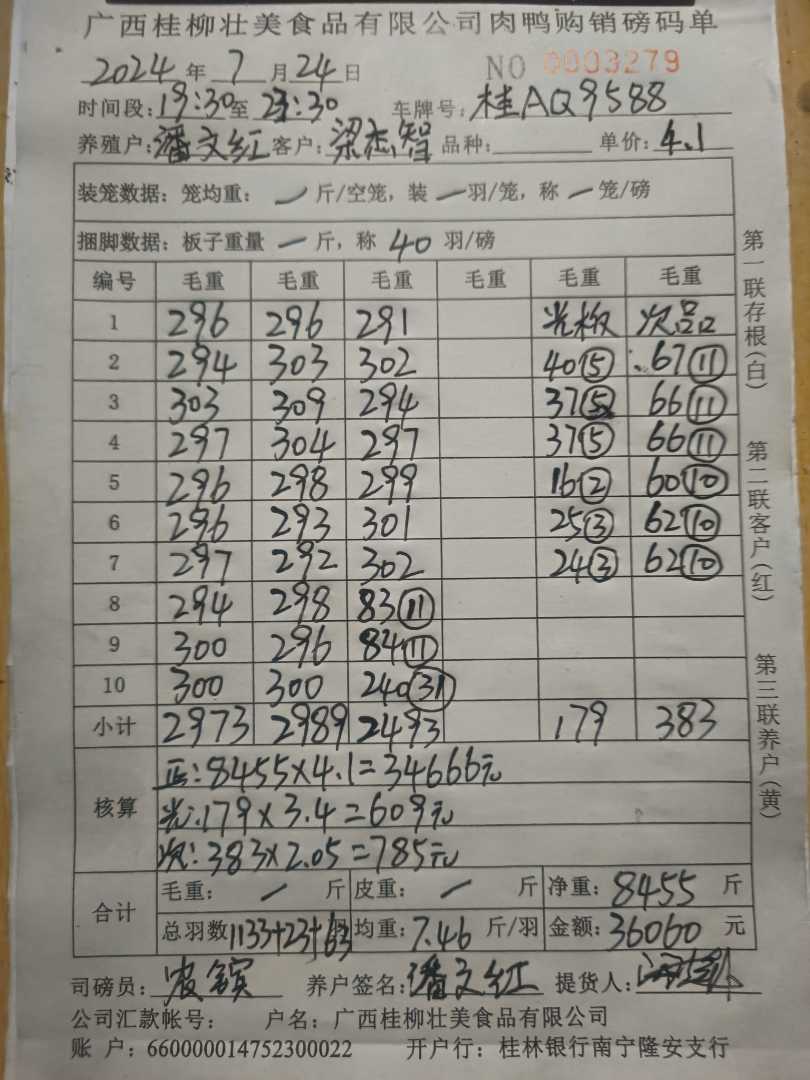 广西桂柳壮美食品有限公司肉鸭购销磅码单
2024年7月24日 NO 0003279
时间段:19:30至23:30 车牌号:桂AQ9588
养殖户:潘文红 客户:梁志智 品种: 单价:4.1
装笼数据:笼均重: — 斤/空笼,装 — 羽/笼,称 — 笼/磅
捆脚数据:板子重量 — 斤,称 40 羽/磅
编号 毛重 毛重 毛重 毛重 毛重 毛重
1 296 296 291 光板 次品
2 294 303 302 40⑤ 67⑪
3 303 309 294 37⑤ 66⑪
4 297 304 297 37⑤ 66⑪
5 296 298 299 16② 60⑩
6 296 293 301 25③ 62⑩
7 297 292 302 24③ 62⑩
8 294 298 83⑪
9 300 296 84⑪
10 300 300 240㉛
小计 2973 2989 2493 179 383
核算
正:8455×4.1=34666元
光:179×3.4=609元
次:383×2.05=785元
合计
毛重: — 斤 皮重: — 斤 净重:8455 斤
总羽数1133+23+63羽 均重:7.46 斤/羽 金额:36060 元
司磅员: 养户签名:潘文红 提货人:
公司汇款帐号: 户名:广西桂柳壮美食品有限公司
账 户:660000014752300022 开户行:桂林银行南宁隆安支行
第一联存根(白)
第二联客户(红)
第三联养户(黄)